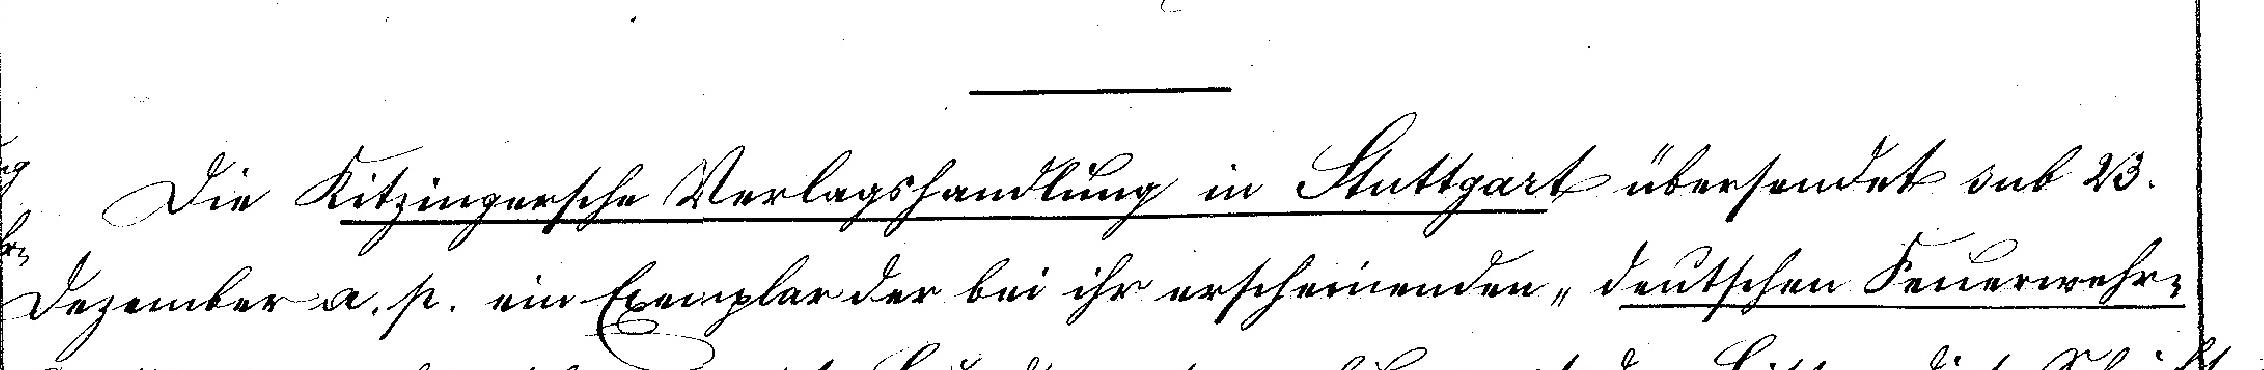 Die Kitzingersche Verlagshandlung in Stuttgart übersendet sub 23.
Dezember a. p. ein Exemplar der bei ihr erscheinenden „deutschen Feuerwehr-